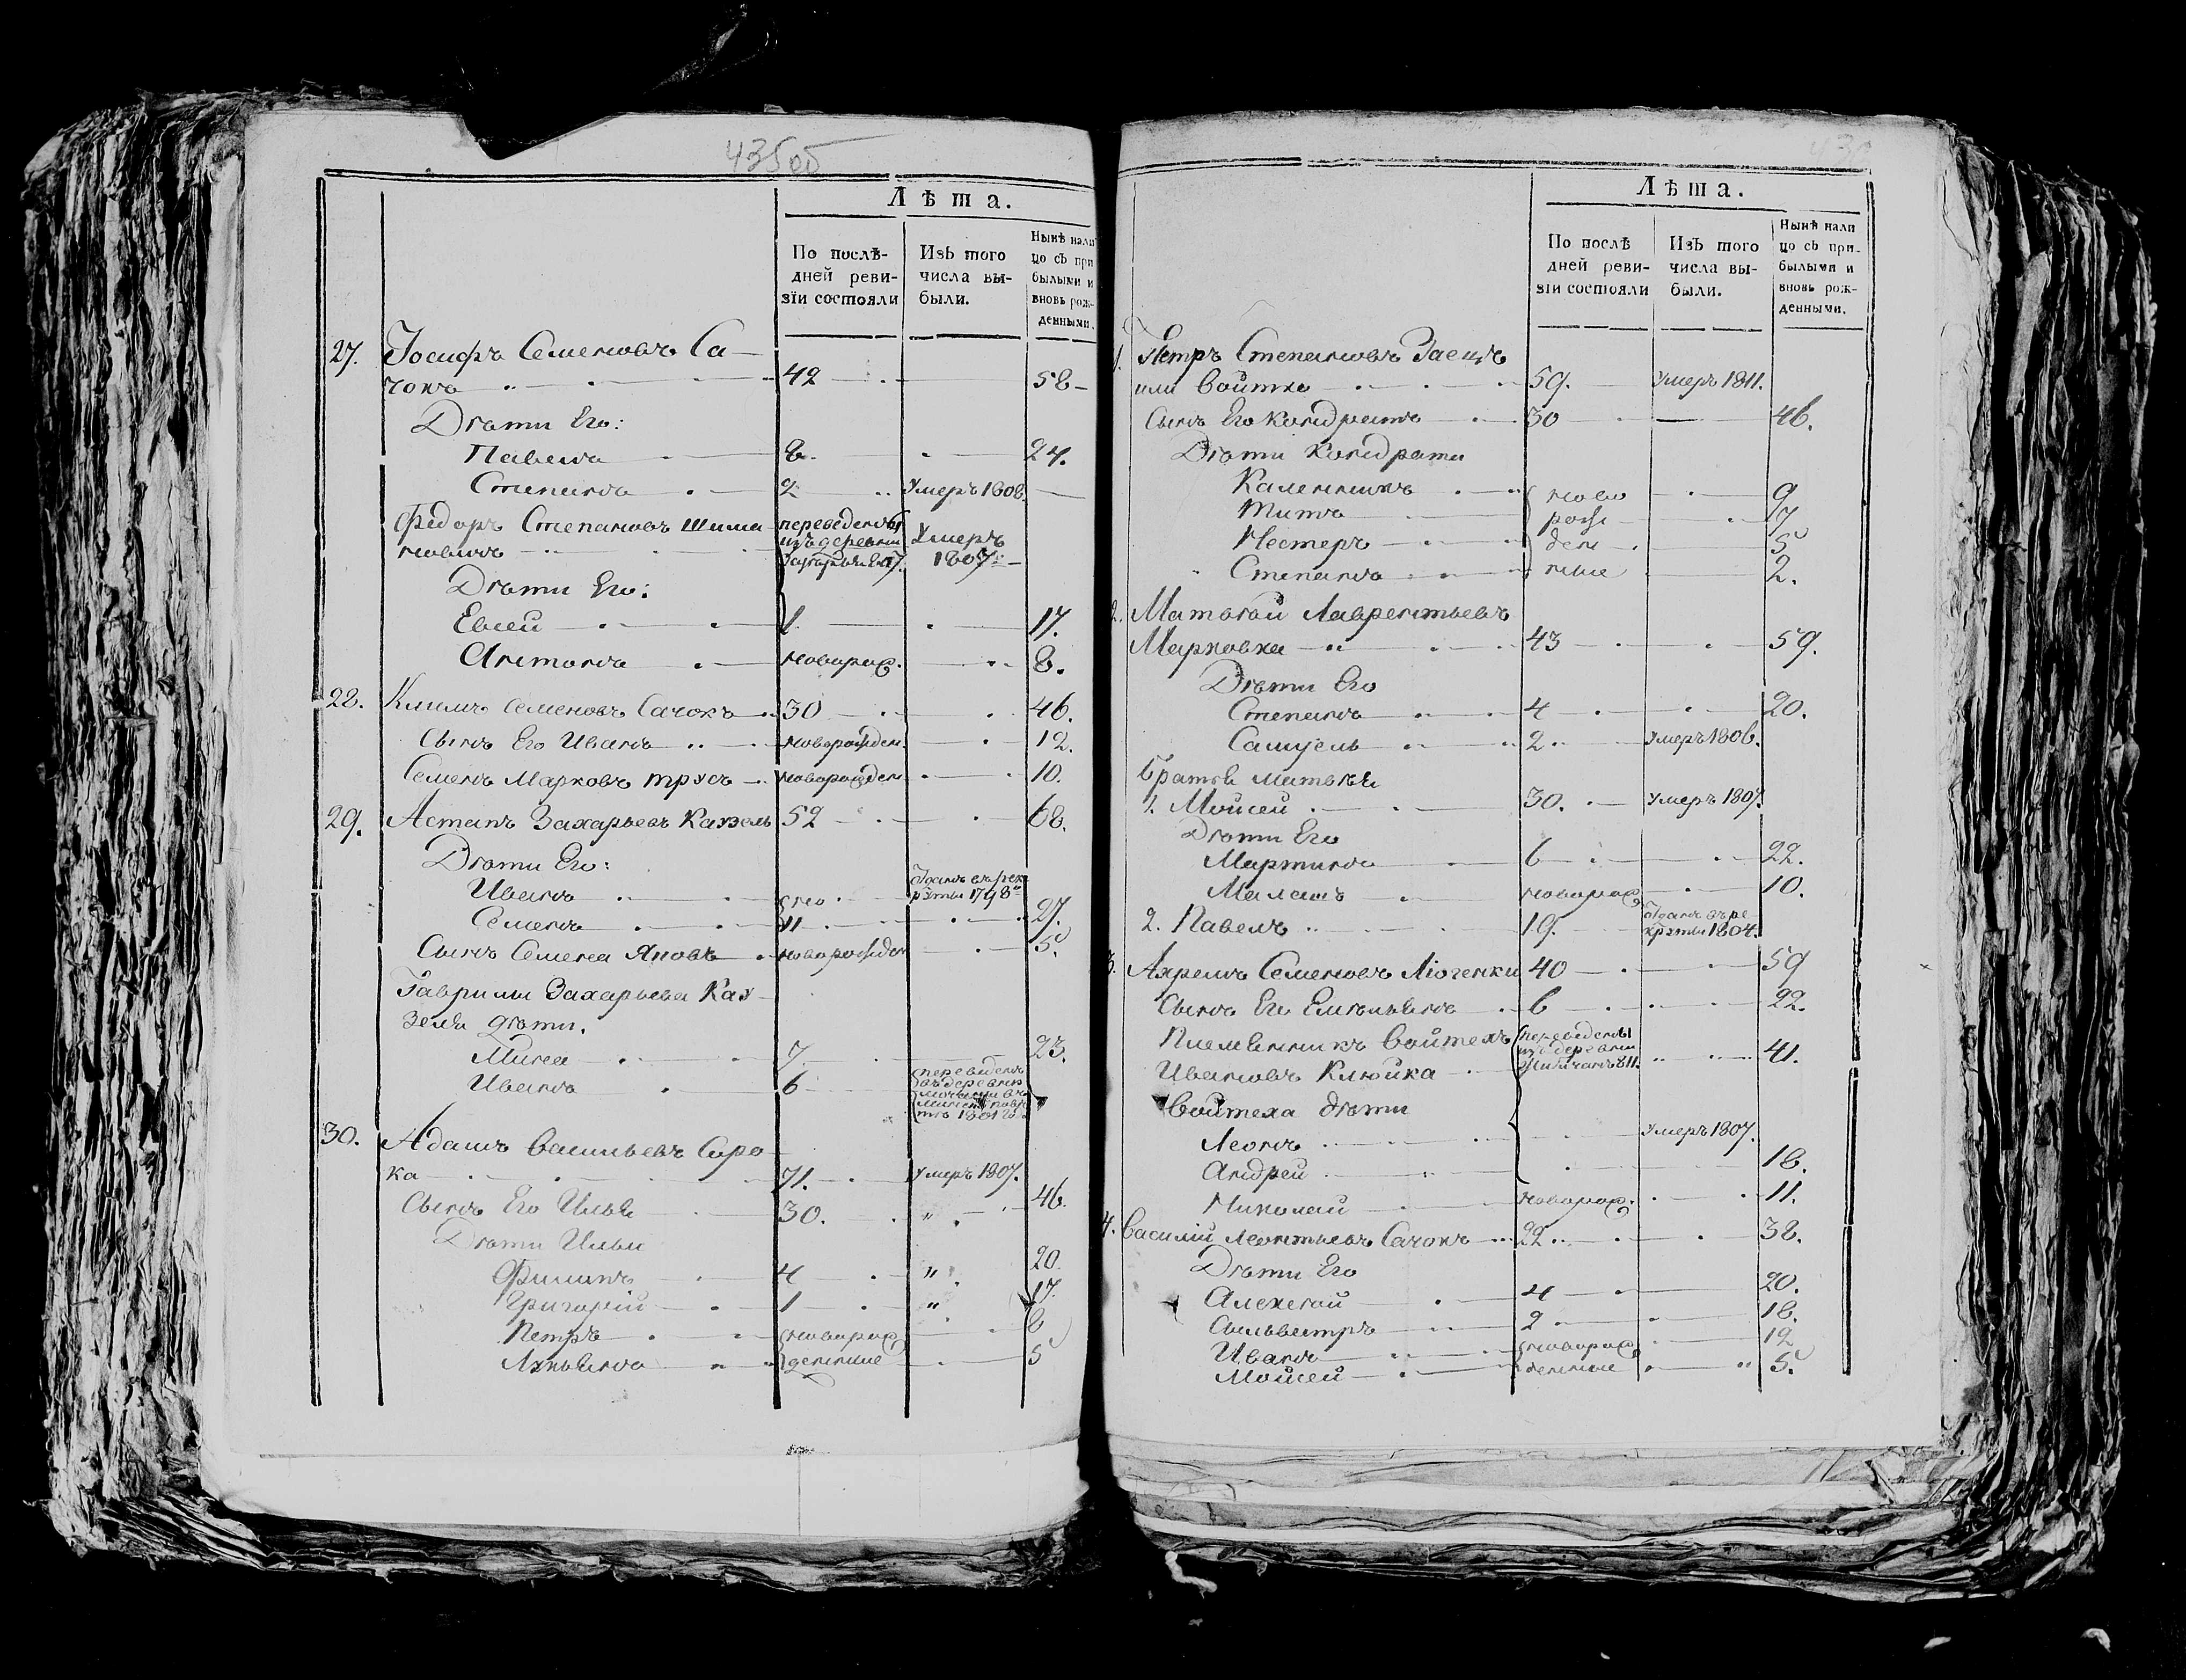 435об
Лѣта.
По послѣ-
дней реви-
зіи состояли
Изъ того
числа вы-
были.
Нынѣ нали
цо съ при
былыми и
вновь рож-
денными.
27. Іосифъ Семеновъ Са-
чокъ 42 58
Дѣти Его:
Павелъ 8. 24.
Степанъ 2 Умеръ 1808.
Федоръ Степановъ Шима
новичъ переведены изъ деревни Умеръ 1807
Дѣти Его:
Евсей 1 17.
Антонъ новорож. 8.
28. Климъ Семеновъ Сачокъ 30 46.
Сынъ Его Иванъ новорожден. 12.
Семенъ Марковъ Трусъ новорожден 10.
29. Астапъ Захарьевъ Казель 52 68.
Дѣти Его:
Иванъ Отданъ въ рек
руты 1798
Семенъ 11 27.
Сынъ Семена Яковъ новорожден 5.
Гаврилы Захарьева Каз-
зеля дѣти.
Мина 7 23.
Иванъ 6 переведенъ
въ деревню
1801
30. Адамъ Васильевъ Соро
ка 71. Умеръ 1807.
Сынъ Его Илья 30. " 46.
Дѣти Ильи
Филипъ 4 " 20.
Григорій 1 " 17.
Петръ новорож 8
Лукьянъ денные 5
Лѣта.
По послѣ
дней реви-
зіи состояли
Изъ того
числа вы-
были.
Нынѣ нали
цо съ при-
былыми и
вновь рож-
денными.
1. Петръ Степановъ Заецъ
или Войтко 59. Умеръ 1811.
Сынъ Его Кондратъ 30 46.
Дѣти Кондрата
Каленникъ ново 9
Титъ рож 7
Нестеръ ден 5
Степанъ ные 2.
2. Матвѣй Лаврентьевъ
Марковка 43 59.
Дѣти Его
Степанъ 4 20.
Самуель 2 Умеръ 1806.
Братья Матвѣя
1. Мойсей 30. Умеръ 1807.
Дѣти Его
Мартинъ 6 22.
Малашъ новорож 10.
2. Павелъ 19. Отданъ въ ре-
круты 1804.
3. Ахремъ Семеновъ 40 59
Сынъ Его Емельянъ 6 22.
Племенникъ Войтехъ переведены
изъ деревни
Ивановъ Клюйка 811. 41.
Войтеха дѣти
Леонъ Умеръ 1807.
Андрей 18.
Николай новорож. 11.
4. Василій Леонтьевъ Сачокъ 22 38.
Дѣти Его
Алексѣй 4 20.
Сильвестръ 2 18.
Иванъ новорож 12
Мойсей денные " 5.